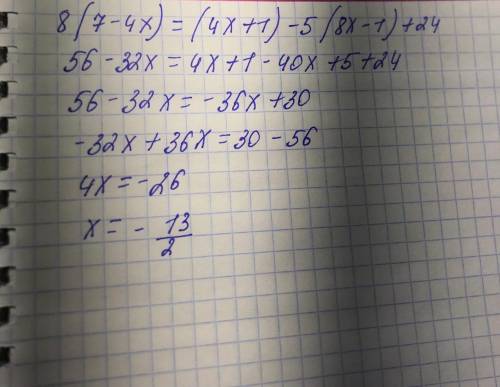 8(7-4x)=(4x+1)-5(8x-1)+24
56-32x=4x+1-40x+5+24
56-32x=-36x+30
-32x+36x=30-56
4x=-26
x=-13/2